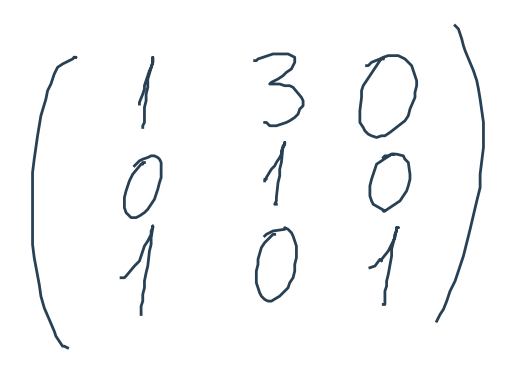 1 3 0
0 1 0
1 0 1